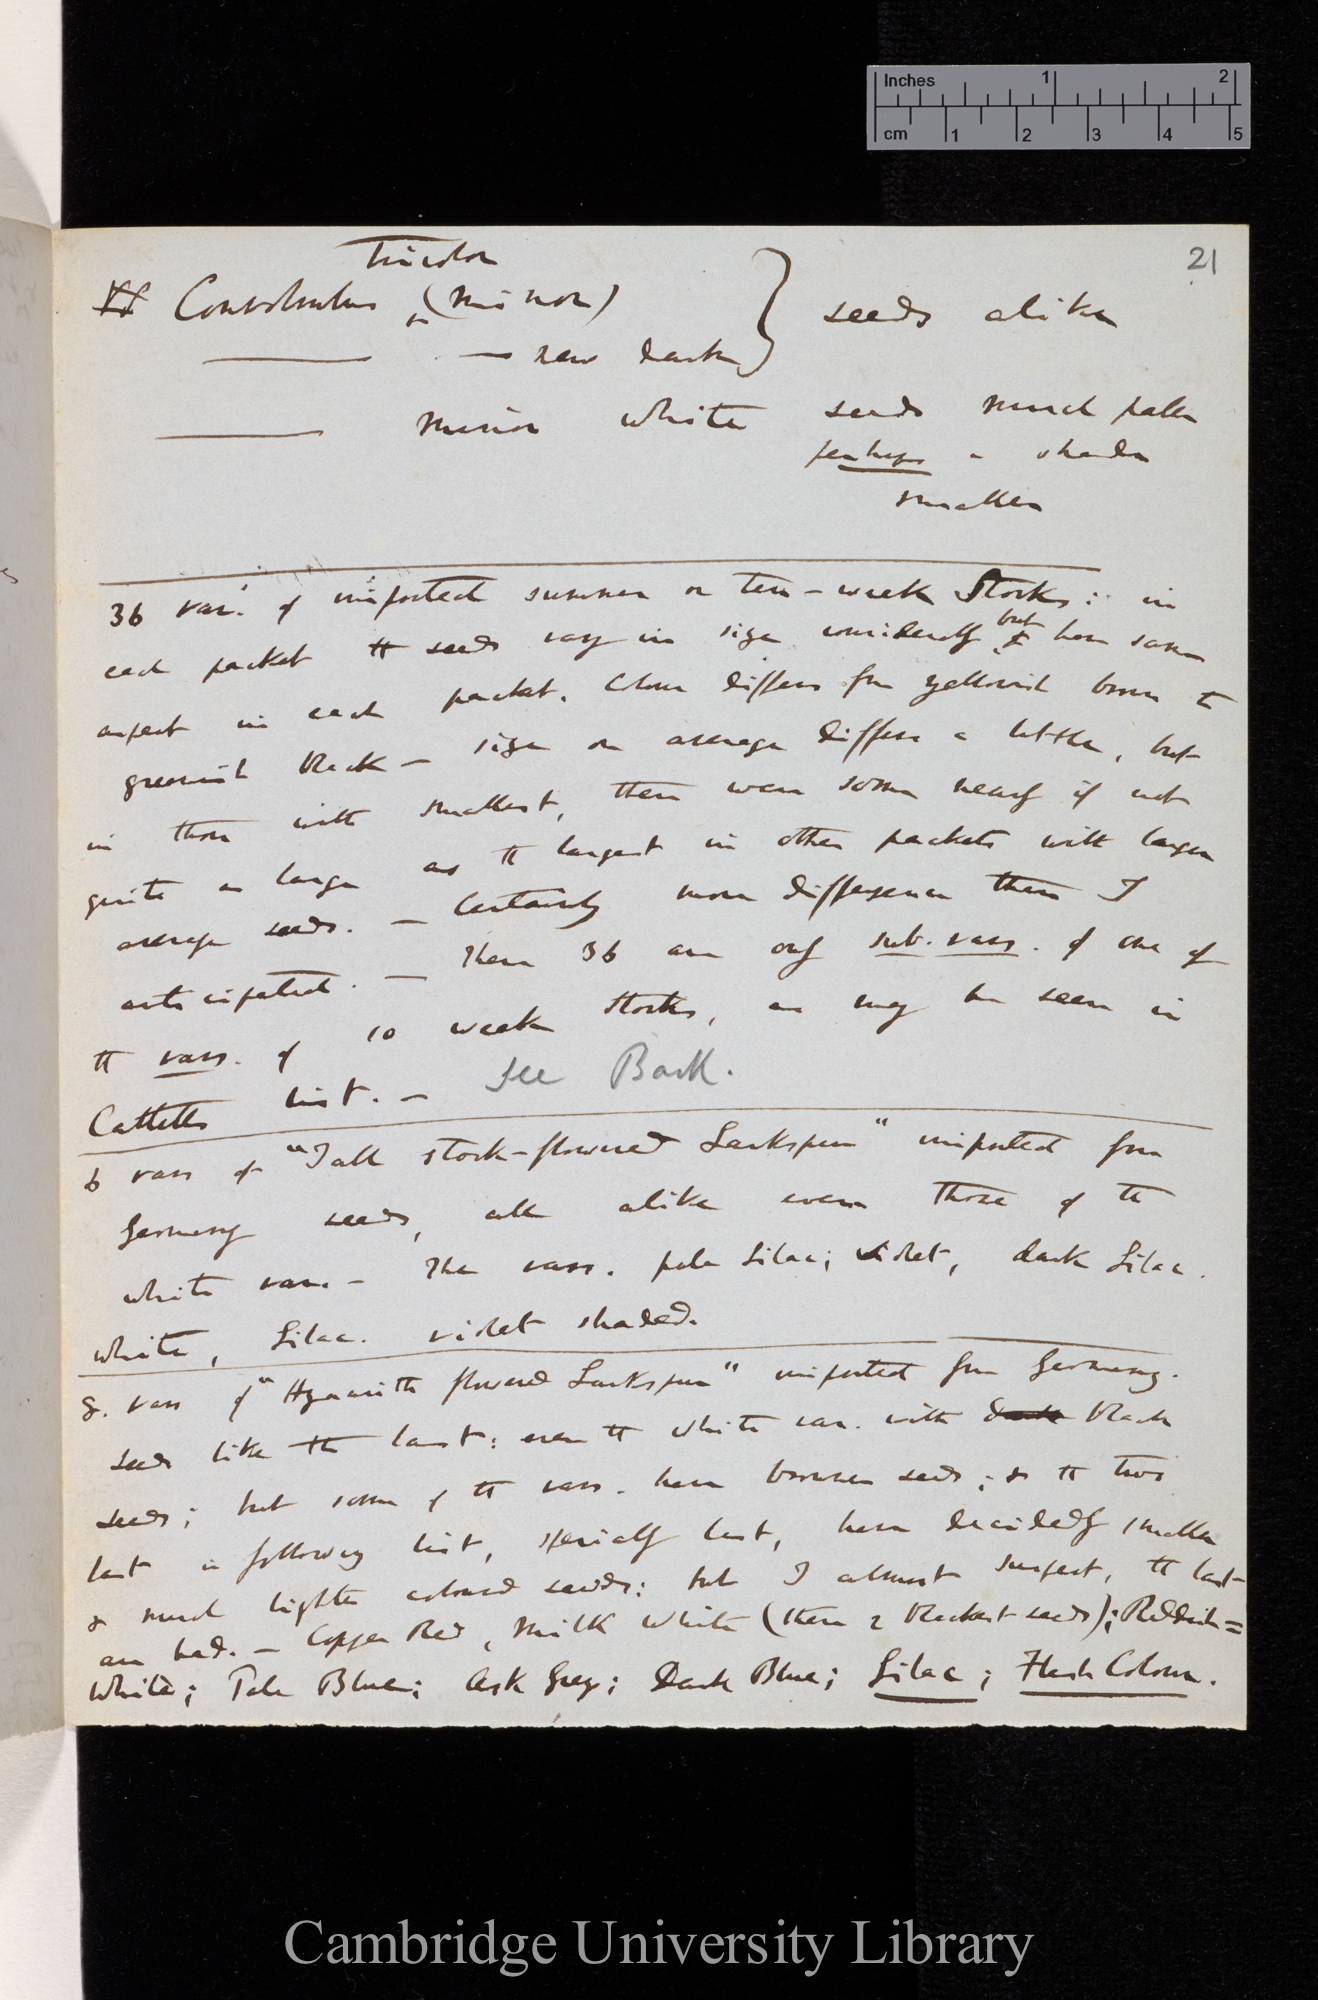 Inches 1 2
cm 1 2 3 4 5
21
Tricolor
Convolvulus (minor) } seeds alike
——— — new dark
——— minor white seeds much paler
perhaps a shade
smaller
36 var. of imported summer or ten-week Stocks: in
each packet the seeds vary in size considerably but have same
aspect in each packet. Colour differs from yellowish brown to
greenish black — size on average differs a little, but
in those with smallest, there were some nearly if not
quite as large as the largest in other packets with larger
average seeds. — Certainly more difference than I
anticipated. — These 36 are only sub-vars. of one of
the vars. of 10 week Stocks, as may be seen in
Cattells list. — See Back.
6 vars of "Tall stock-flowered Larkspur" imported from
Germany seeds, all alike even those of the
white var. — The vars. pale Lilac; violet, dark Lilac.
white, Lilac. violet shaded.
8. vars of "Hyacinth flowered Larkspur" imported from Germany.
seeds like the last: even the white var. with dark black
seeds; but some of the vars. have browner seeds; & the two
last in following list, specially last, have decidedly smaller
& much lighter coloured seeds: but I almost suspect, the last
are bad. — Copper Red, Milk White (these 2 blackest seeds); Reddish=
White; Pale Blue; Ash Grey; Dark Blue; Lilac; Flesh Colour.
Cambridge University Library